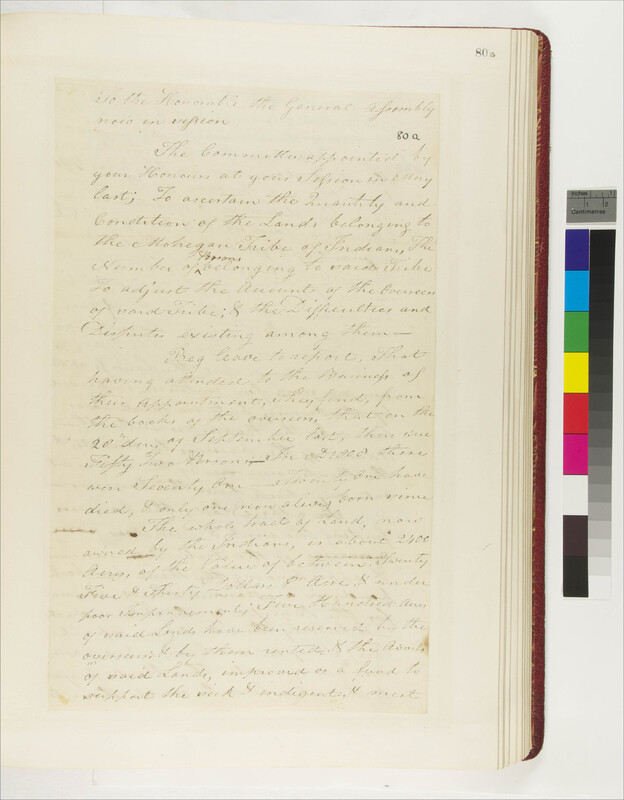 80a
To the Honorable the General Assembly
now in session
80a
The Committee appointed by
your Honours at your Session in May
last; To ascertain the Quantity and
Condition of the Lands belonging to
the Mohegan Tribe of Indians, The
Number of Persons belonging to said Tribe
To adjust the Accounts of the Overseers
of said Tribe; & the Difficulties and
Disputes existing among them—
Beg leave to report, That
having attended to the Business of
their appointment, they find, from
the books of the overseers that on the
20th day of September last, there were
Fifty Two Persons— In 1808 there
were Seventy One Twenty one have
died, & only one now alive born since
The whole tract of Land, now
owned by the Indians, is about 2400
Acres, of the value of between Twenty
Five & Thirty Dollars pr Acre, & under
poor Improvement; Five Hundred Acres
of said Lands have been reserved by the
overseers & by them rented & the Avails
of said Lands, improved as a fund to
support the sick & indigent, & meet